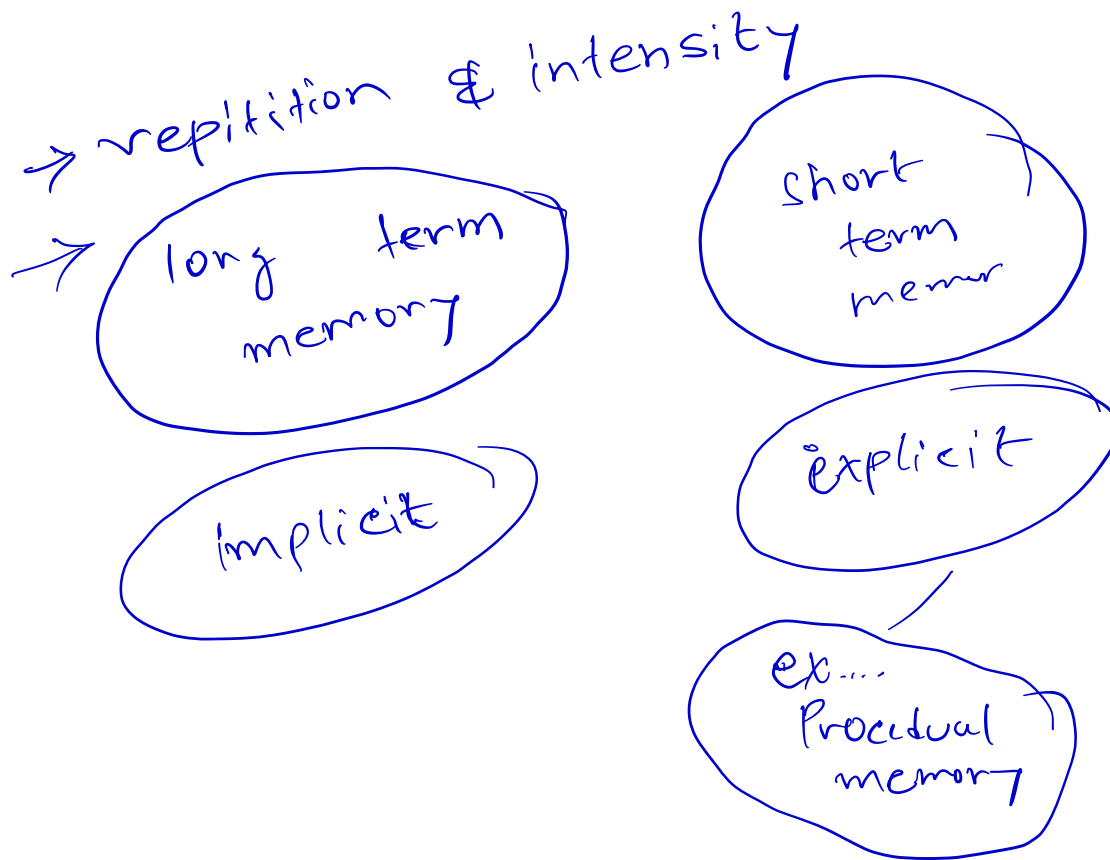 → repitition & intensity
→ long term
memory
short
term
memor
implicit
explicit
ex....
Procedual
memory